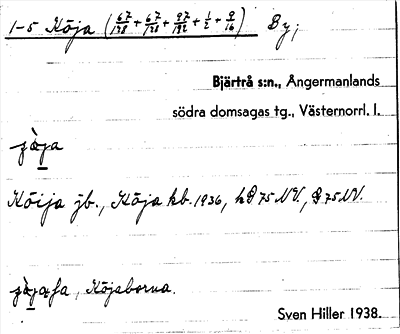 1-5 Köja (67/128 + 67/128 + 87/192 + 1/2 + 9/16) By;
Bjärtrå s:n., Ångermanlands
södra domsagas tg., Västernorrl. l.
Köija jb., Köja kb. 1936, 75 NV., 75 NV.
Köjaborna.
Sven Hiller 1938.